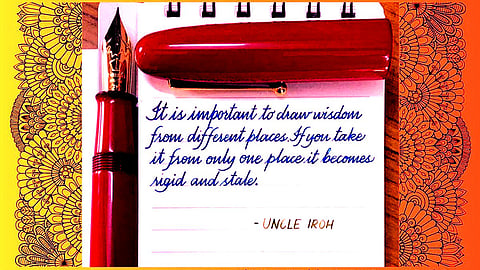 It is important to draw wisdom
from different places. If you take
it from only one place it becomes
rigid and stale.
- UNCLE IROH